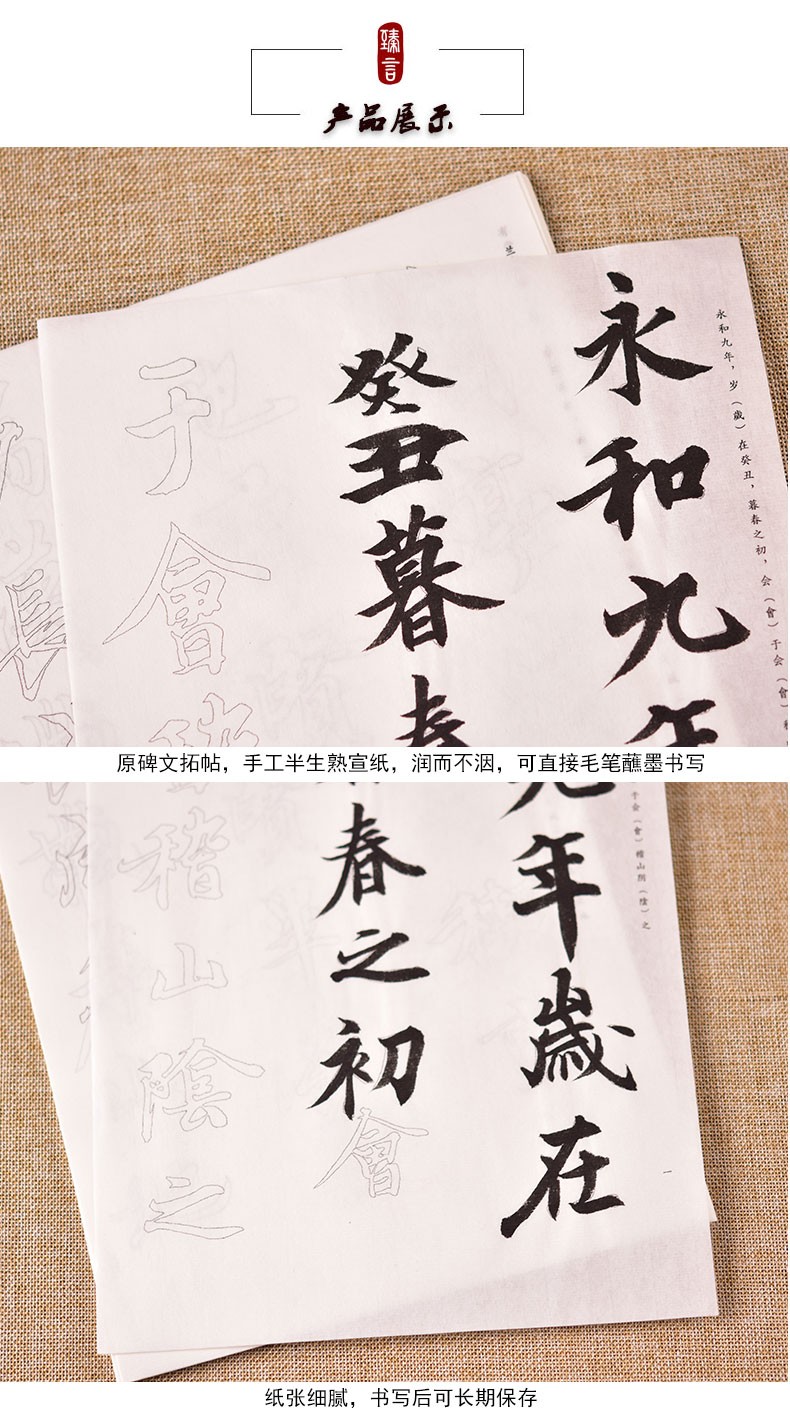 臻言
产品展示
永和九年，岁（歲）在癸丑，暮春之初，会（會）于会（會）
永和九年
癸丑暮春
于會稽
原碑文拓帖，手工半生熟宣纸，润而不洇，可直接毛笔蘸墨书写
于会（會）稽山阴（陰）之
九年歲在
春之初會
稽山陰之
一
纸张细腻，书写后可长期保存